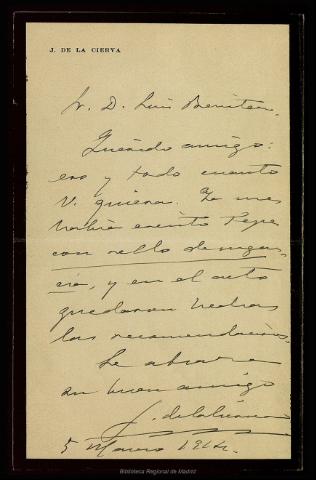 J. DE LA CIERVA
Sr. D. Luis Benítez.
Querido amigo:
eso y todo cuanto
V. quiera. Ya me
había escrito Pepe
con sello de urgen-
cia, y en el acto
quedaron hechas
las recomendaciones.
Le abraza
su buen amigo
J. de la Cierva
5 Marzo 1914.
Biblioteca Regional de Madrid